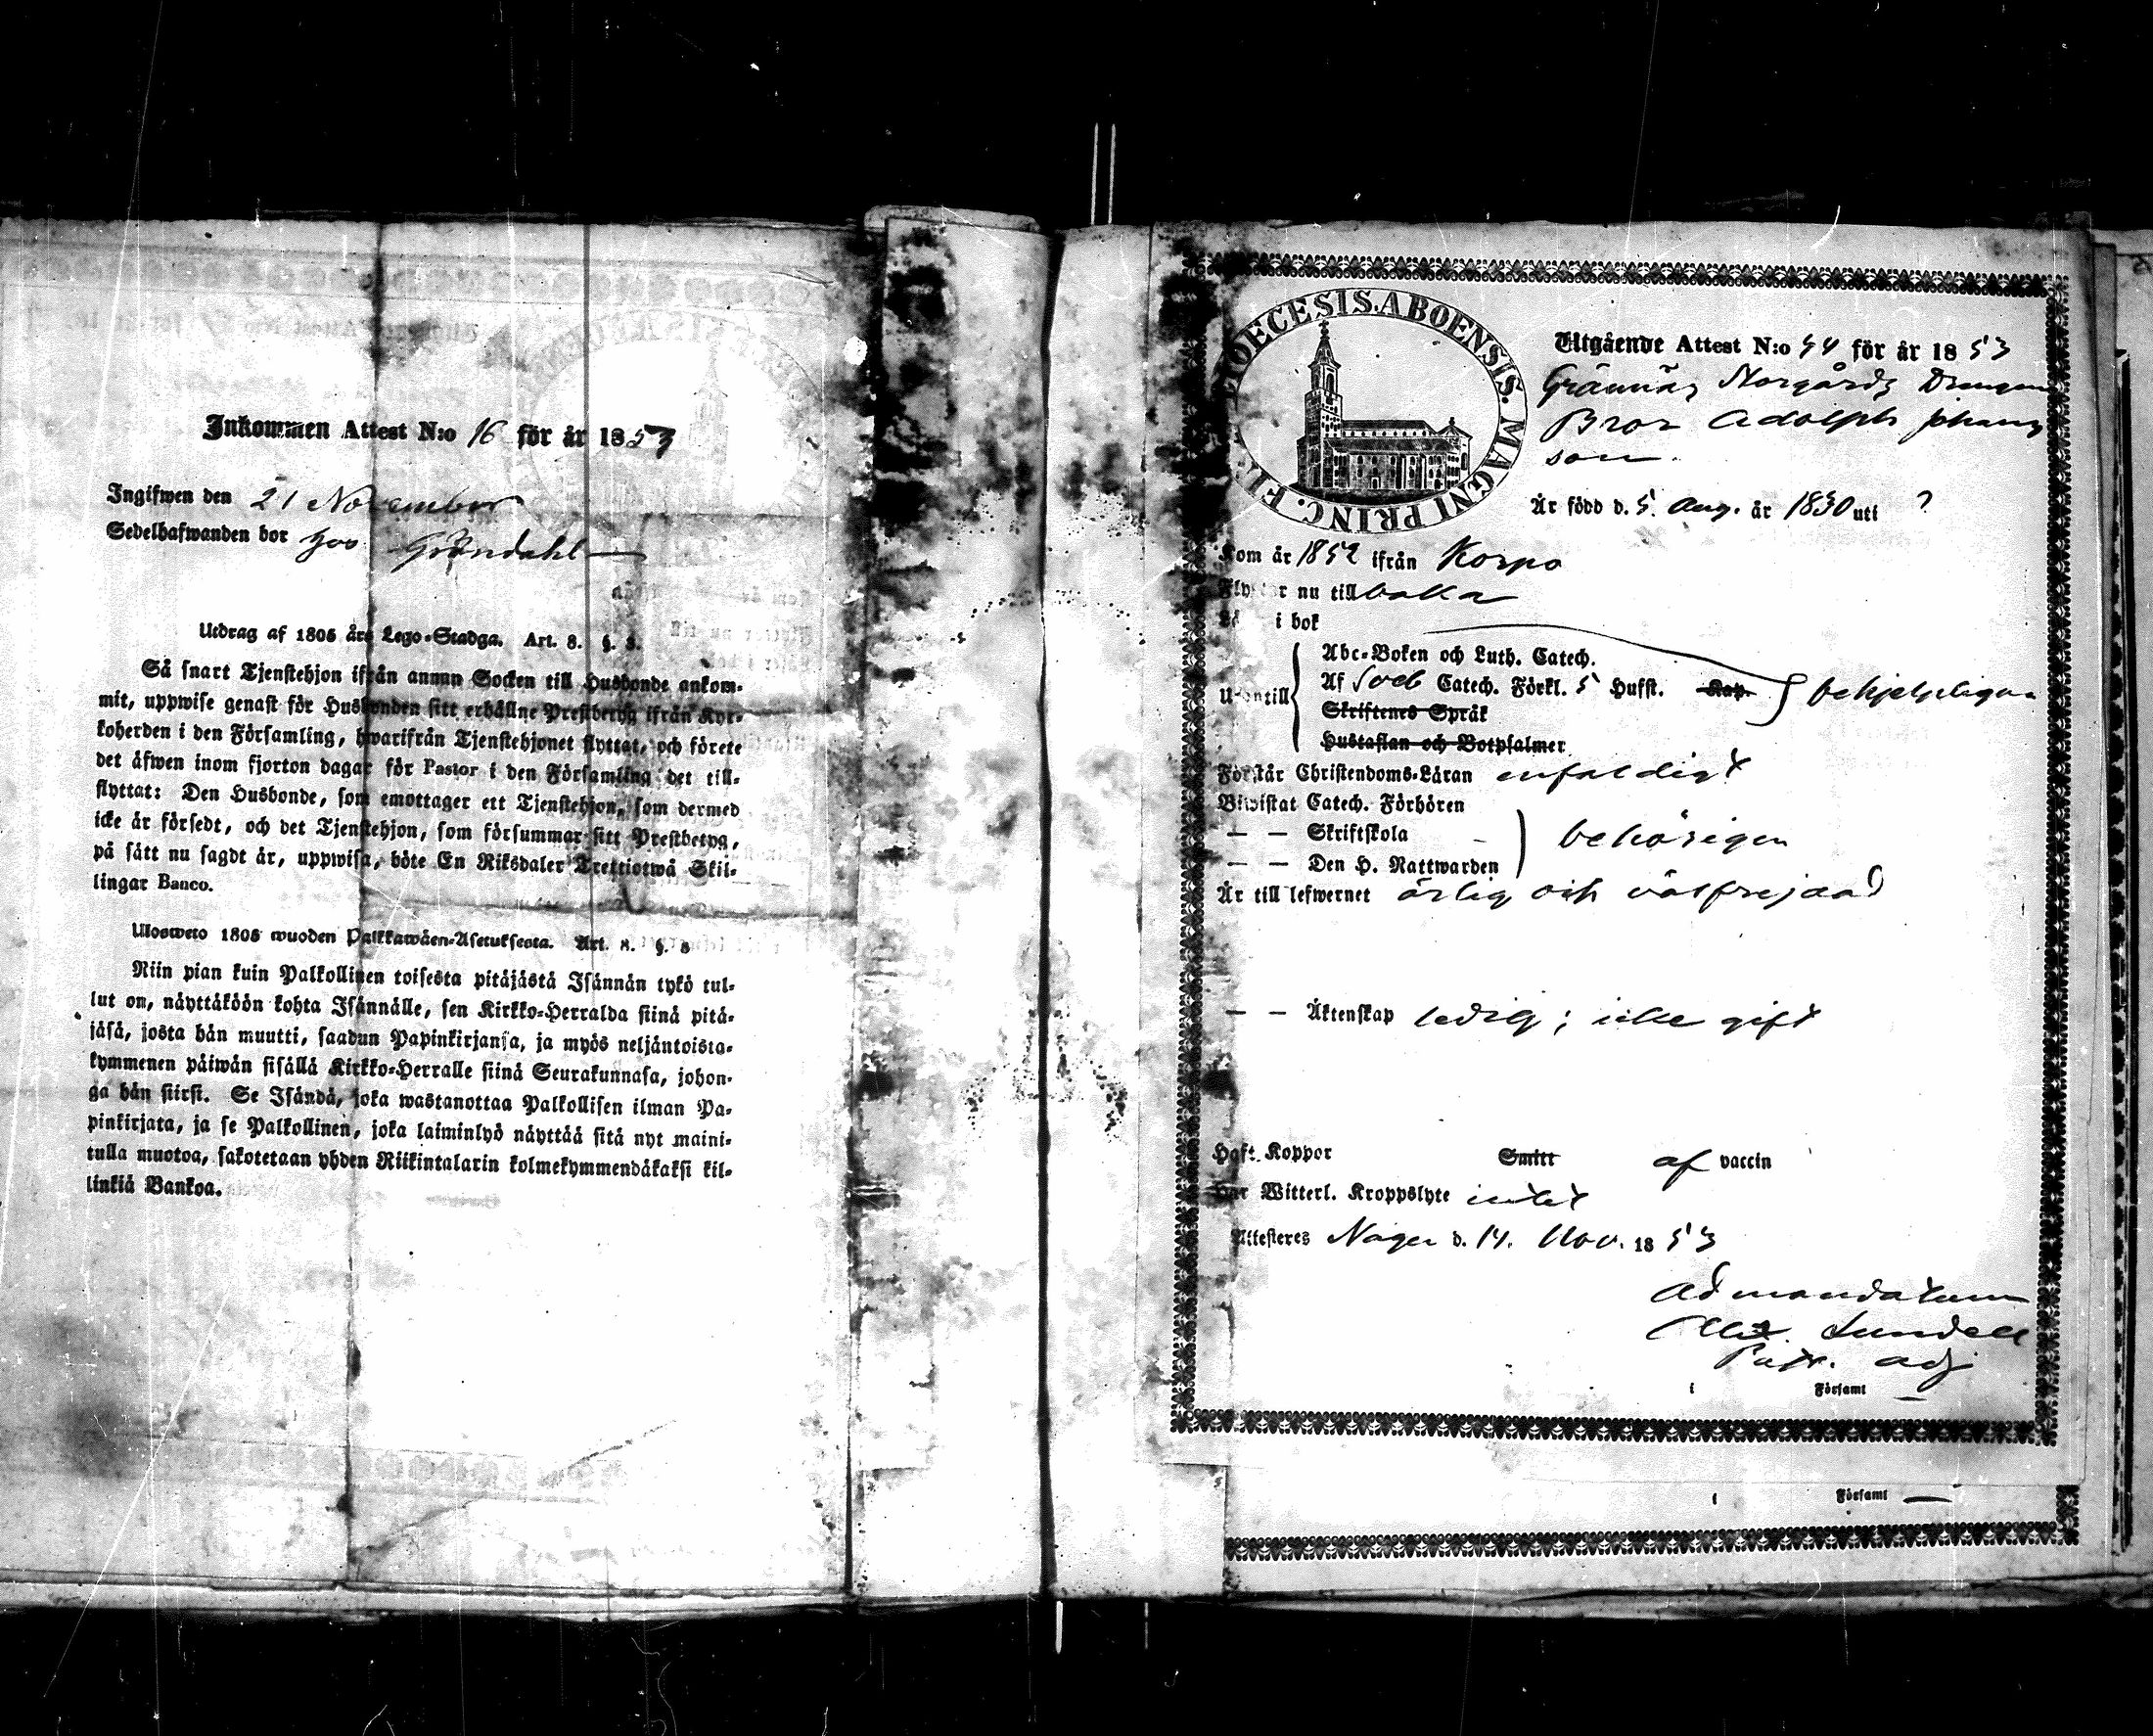 Inkommen Attest N:o 16 för år 1853
Ingifwen den 21 November
Sedelhafwanden bor hos Gröndahl
Utdrag af 1805 års Lego-Stadga. Art. 8. §. 3.
Så snart Tjenstehjon ifrån annan Socken till Husbonde ankom-
mit, uppwise genast för Husbonden sitt erhållne Prestbetyg ifrån Kyr-
koherden i den Församling, hwarifrån Tjenstehjonet flyttat, och förete
det äfwen inom fjorton dagar för Pastor i den Församling det till-
flyttat: Den Husbonde, som emottager ett Tjenstehjon, som dermed
icke är försedt, och det Tjenstehjon, som försummar sitt Prestbetyg,
på sätt nu sagdt är, uppwisa, böte En Riksdaler Trettiotwå Skil-
lingar Banco.
Ulosweto 1805 wuoden Palkkawäen-Asetuksesta. Art. 8. §. 3
Niin pian kuin Palkollinen toisesta pitäjästä Isännän tykö tul-
lut on, näyttäköön kohta Isännälle, sen Kirkko-Herralda siinä pitä-
jäsä, josta hän muutti, saadun Papinkirjansa, ja myös neljäntoista-
kymmenen päiwän sisällä Kirkko-Herralle siinä Seurakunnasa, johon-
ga hän siirsi. Se Isändä, joka wastanottaa Palkollisen ilman Pa-
pinkirjata, ja se Palkollinen, joka laiminlyö näyttää sitä nyt maini-
tulla muotoa, sakotetaan yhden Riikintalarin kolmekymmendäkaksi kil-
linkiä Bankoa.
DIOECESIS. ABOENSIS. MAGNI PRINC. FI
Utgående Attest N:o 54 för år 1853
Grännäs Norgårds Drengen
Bror Adolph Johans
son
Är född d. 5. Aug. år 1830 uti ?
Kom år 1852 ifrån Korpo
Flyttar nu tillbaka
i bok
Abc-Boken och Luth. Catech.
Utantill Af Sveb Catech. Förkl. 5 Hufst. Kap. behjelpligen
Skriftenes Språk
Hustaflan och Botpsalmer
Förstår Christendoms-Läran enfaldigt
Biwistat Catech. Förhören
— — Skriftskola behörigen
— — Den H. Nattwarden
Är till lefwernet ärlig och välfrejdad
— — Äktenskap ledig; icke gift
Haft Koppor Smitt af vaccin
Har Witterl. Kroppslyte intet
Attesteres Nagu d. 14. Nov. 1853
Ad mandatum
Lundell
Past. adj
i Församl
i Församl